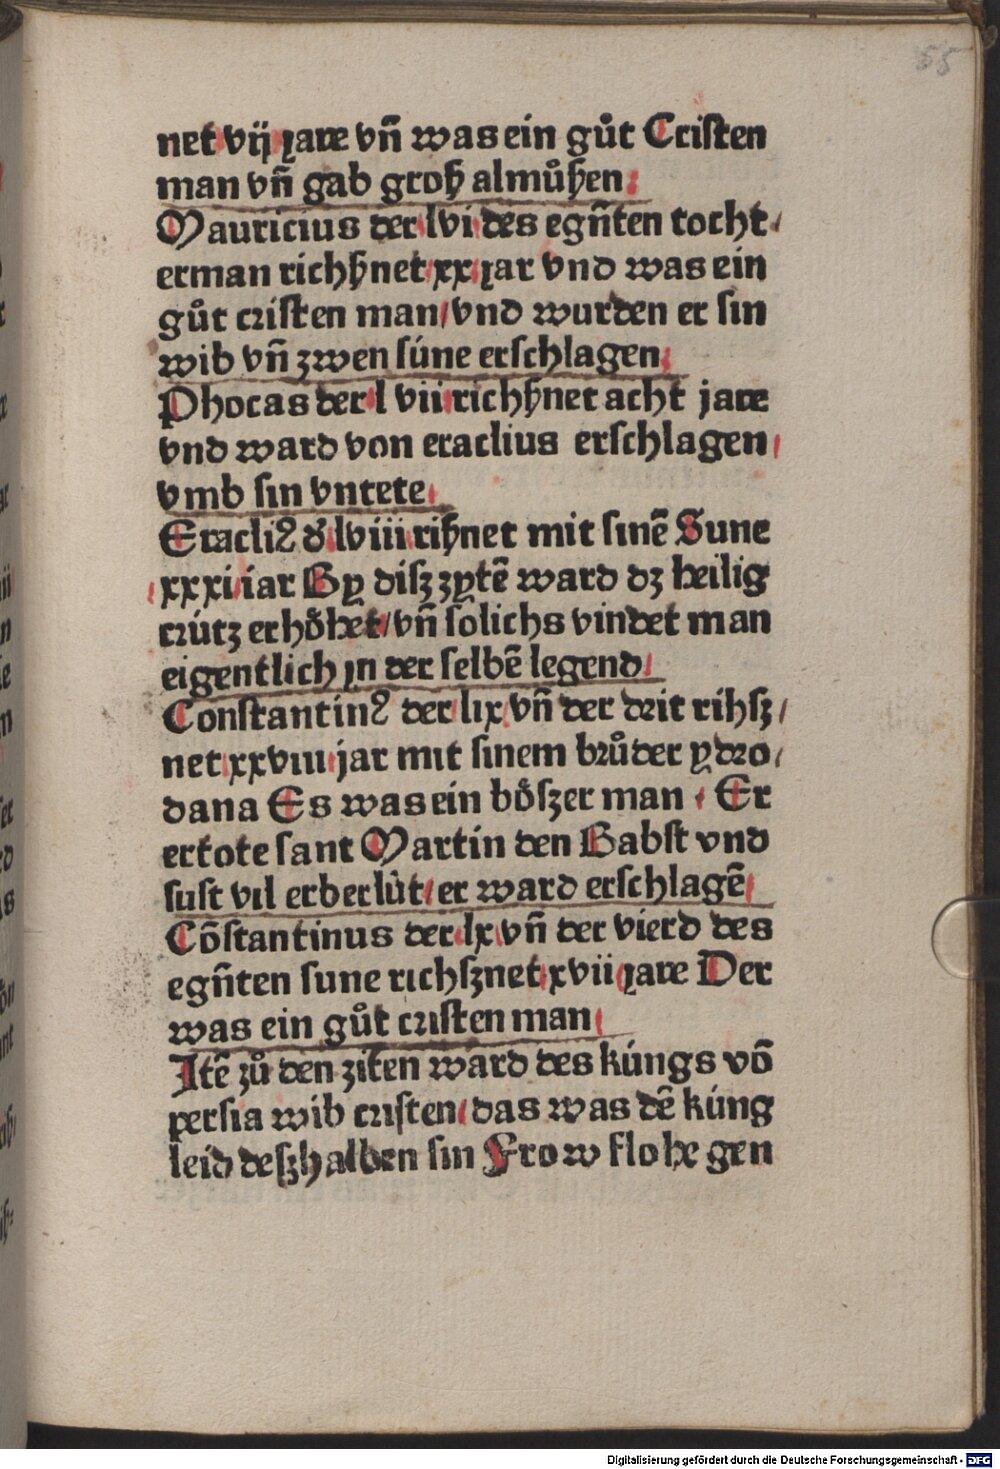 55
net vij jare vn̄ was ein gůt Cristen
man vn̄ gab groß almůßen
Mauricius der lvi des egn̄ten tocht/
erman richßnet xx jar vnd was ein
gůt cristen man/vnd wurden er sin
wib vn̄ zwen súne erschlagen
Phocas der l vii richßnet acht jare
vnd ward von eraclius erschlagen
vmb sin vntete
Eracliꝰ d̕ lviii rißnet mit sinē Sune
xxxi iar By disz zytē ward dz heilig
crútz erhöhet/vn̄ solichs vindet man
eigentlich jn der selbē legend
Constantinꝰ der lix vn̄ der drit rihsz/
net xxviii jar mit sinem brůder ydro/
dana Es was ein bößzer man / Er
ertote sant Martin den Babst vnd
sust vil erber lút/er ward erschlagē
Cōstantinus der lx vn̄ der vierd des
egn̄ten sune richsznet xvii jare Der
was ein gůt cristen man
Itē zů den ziten ward des kúngs vō
persia wib cristen/das was dē kúng
leid deszhalben sin Frow flohe gen
Digitalisierung gefördert durch die Deutsche Forschungsgemeinschaft - DFG